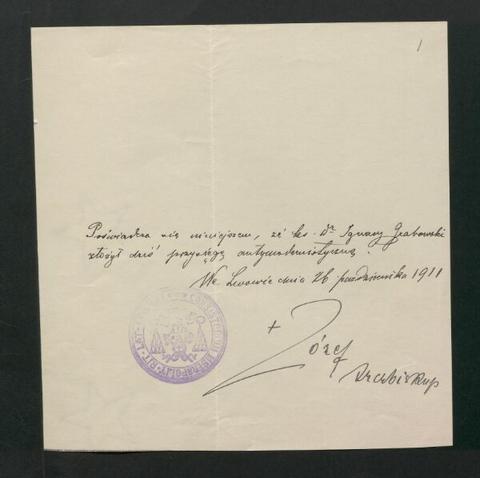 1
Poświadcza się niniejszem, że ks. Dr. Ignacy Grabowski
złożył dziś przysięgę antymodernistyczną.
We Lwowie dnia 26 października 1911
+ Józef
Arcybiskup